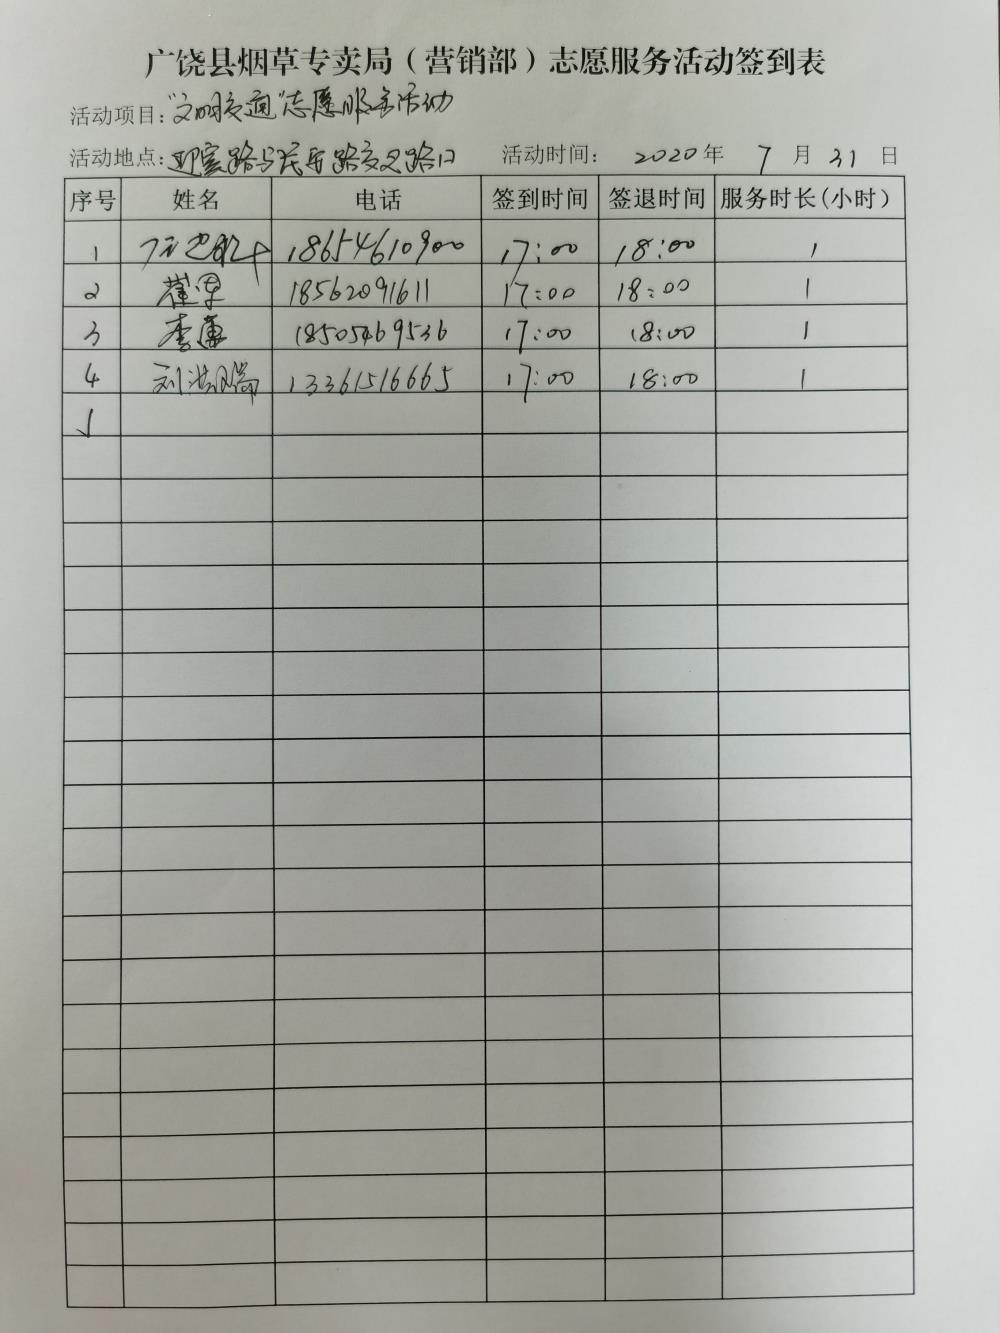 广饶县烟草专卖局（营销部）志愿服务活动签到表
活动项目：“文明交通”志愿服务活动
活动地点：迎宾路与民安路交叉路口 活动时间： 2020 年 7 月 31 日
序号 姓名 电话 签到时间 签退时间 服务时长(小时)
1 18654610900 17:00 18:00 1
2 18562091611 17:00 18:00 1
3 李莲 18505469536 17:00 18:00 1
4 刘洪瑞 13361516665 17:00 18:00 1